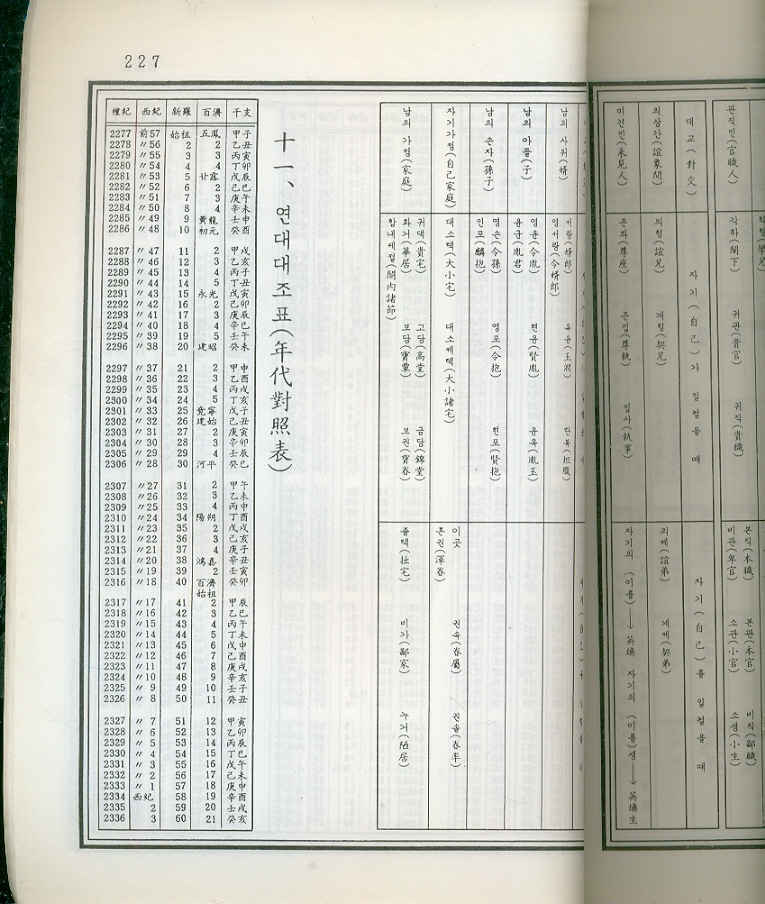 관직인(官職人)
각하(閣下)
귀관(貴官)
귀직(貴職)
본직(本職)
비관(卑官)
소관(小官)
본관(本官)
소생(小生)
비직(鄙職)
대교(對交)
자기(自己)가 일컬을 때
자기(自己)를 일컬을 때
의상간(誼象間)
의형(誼兄)
계형(契兄)
의제(誼弟)
계제(契弟)
미견인(未見人)
존좌(尊座)
존집(尊執)
집사(執事)
자기의 (이름) → 英燒
자기의 (이름)생 → 英燒生
남의 사위(婿)
서랑(婿郎)
영서랑(令婿郎)
옥윤(玉潤)
탄복(坦腹)
남의 아들(子)
영윤(令胤)
윤군(胤君)
현윤(賢胤)
윤옥(胤玉)
남의 손자(孫子)
영손(令孫)
인포(麟抱)
영포(令抱)
현포(賢抱)
자기가정(自己家庭)
대소댁(大小宅)
대소제댁(大小諸宅)
이곳
혼권(渾眷)
권속(眷屬)
권솔(眷率)
남의 가정(家庭)
귀댁(貴宅)
화거(華居)
합내제절(閤內諸節)
고당(高堂)
보담(寶覃)
금당(錦堂)
보권(寶眷)
졸택(拙宅)
비가(鄙家)
누거(陋居)
十一、연대대조표(年代對照表)
227
檀紀 西紀 新羅 百濟 干支
2277 前57 始祖 五鳳 甲子
2278 〃56 2 2 乙丑
2279 〃55 3 3 丙寅
2280 〃54 4 4 丁卯
2281 〃53 5 甘露 戊辰
2282 〃52 6 2 己巳
2283 〃51 7 3 庚午
2284 〃50 8 4 辛未
2285 〃49 9 黃龍 壬申
2286 〃48 10 初元 癸酉
2287 〃47 11 2 甲戌
2288 〃46 12 3 乙亥
2289 〃45 13 4 丙子
2290 〃44 14 5 丁丑
2291 〃43 15 永光 戊寅
2292 〃42 16 2 己卯
2293 〃41 17 3 庚辰
2294 〃40 18 4 辛巳
2295 〃39 19 5 壬午
2296 〃38 20 建昭 癸未
2297 〃37 21 2 甲申
2298 〃36 22 3 乙酉
2299 〃35 23 4 丙戌
2300 〃34 24 5 丁亥
2301 〃33 25 竟寧 戊子
2302 〃32 26 建始 己丑
2303 〃31 27 2 庚寅
2304 〃30 28 3 辛卯
2305 〃29 29 4 壬辰
2306 〃28 30 河平 癸巳
2307 〃27 31 2 甲午
2308 〃26 32 3 乙未
2309 〃25 33 4 丙申
2310 〃24 34 陽朔 丁酉
2311 〃23 35 2 戊戌
2312 〃22 36 3 己亥
2313 〃21 37 4 庚子
2314 〃20 38 鴻嘉 辛丑
2315 〃19 39 2 壬寅
2316 〃18 40 百濟始祖 癸卯
2317 〃17 41 2 甲辰
2318 〃16 42 3 乙巳
2319 〃15 43 4 丙午
2320 〃14 44 5 丁未
2321 〃13 45 6 戊申
2322 〃12 46 7 己酉
2323 〃11 47 8 庚戌
2324 〃10 48 9 辛亥
2325 〃9 49 10 壬子
2326 〃8 50 11 癸丑
2327 〃7 51 12 甲寅
2328 〃6 52 13 乙卯
2329 〃5 53 14 丙辰
2330 〃4 54 15 丁巳
2331 〃3 55 16 戊午
2332 〃2 56 17 己未
2333 〃1 57 18 庚申
2334 西紀 58 19 辛酉
2335 2 59 20 壬戌
2336 3 60 21 癸亥